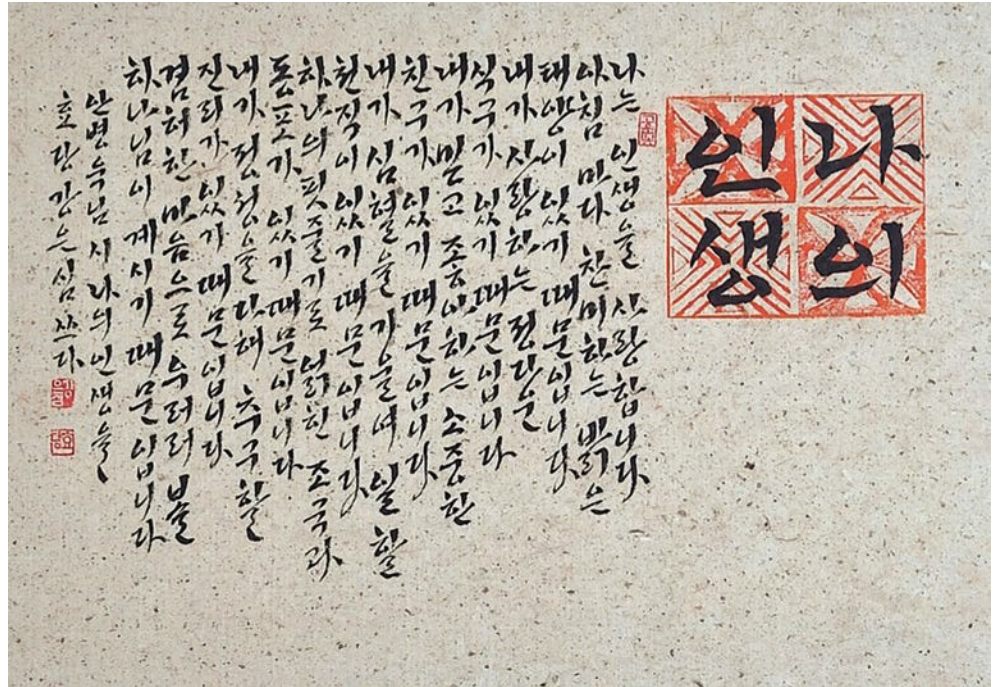 나의
인생
나는 인생을 사랑합니다
아침마다 찬미하는 밝은
태양이 있기 때문입니다
내가 사랑하는 정다운
식구가 있기 때문입니다
내가 믿고 좋아하는 소중한
친구가 있기 때문입니다
내가 심혈을 기울여 일 할
천직이 있기 때문입니다
하나의 핏줄기로 얽힌 조국과
동포가 있기 때문입니다
내가 정성을 다해 추구할
진리가 있기 때문입니다
겸허한 마음으로 우러러 볼
하나님이 계시기 때문입니다
안병욱님 시 나의 인생을
효당 강은심 쓰다